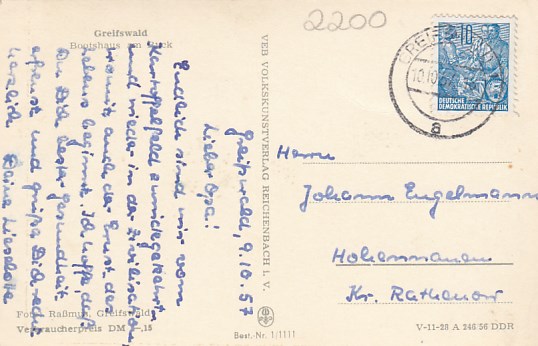 Greifswald
Bootshaus am Ryck
2200
10
DEUTSCHE
DEMOKRATISCHE REPUBLIK
a
Greifswald, 9.10.57
Lieber Opa!
Endlich sind wir vom
Kartoffelfeld zurückgekehrt
und wieder in der Zivilisation,
womit auch der Ernst des
Lebens beginnt. Ich hoffe, daß
Du Dich bester Gesundheit
erfreust und grüße Dich recht
herzlich Deine Liselotte
VEB VOLKSKUNSTVERLAG REICHENBACH I. V.
Herrn
Johann Engelmann
Hohennauen
Kr. Rathenow
Foto: Raßmus, Greifswald
Verbraucherpreis DM -,15
Best.-Nr. 1/1111
V-11-28 A 246 56 DDR